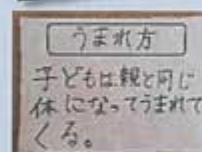 うまれ方
子どもは親と同じ
体になってうまれて
くる。